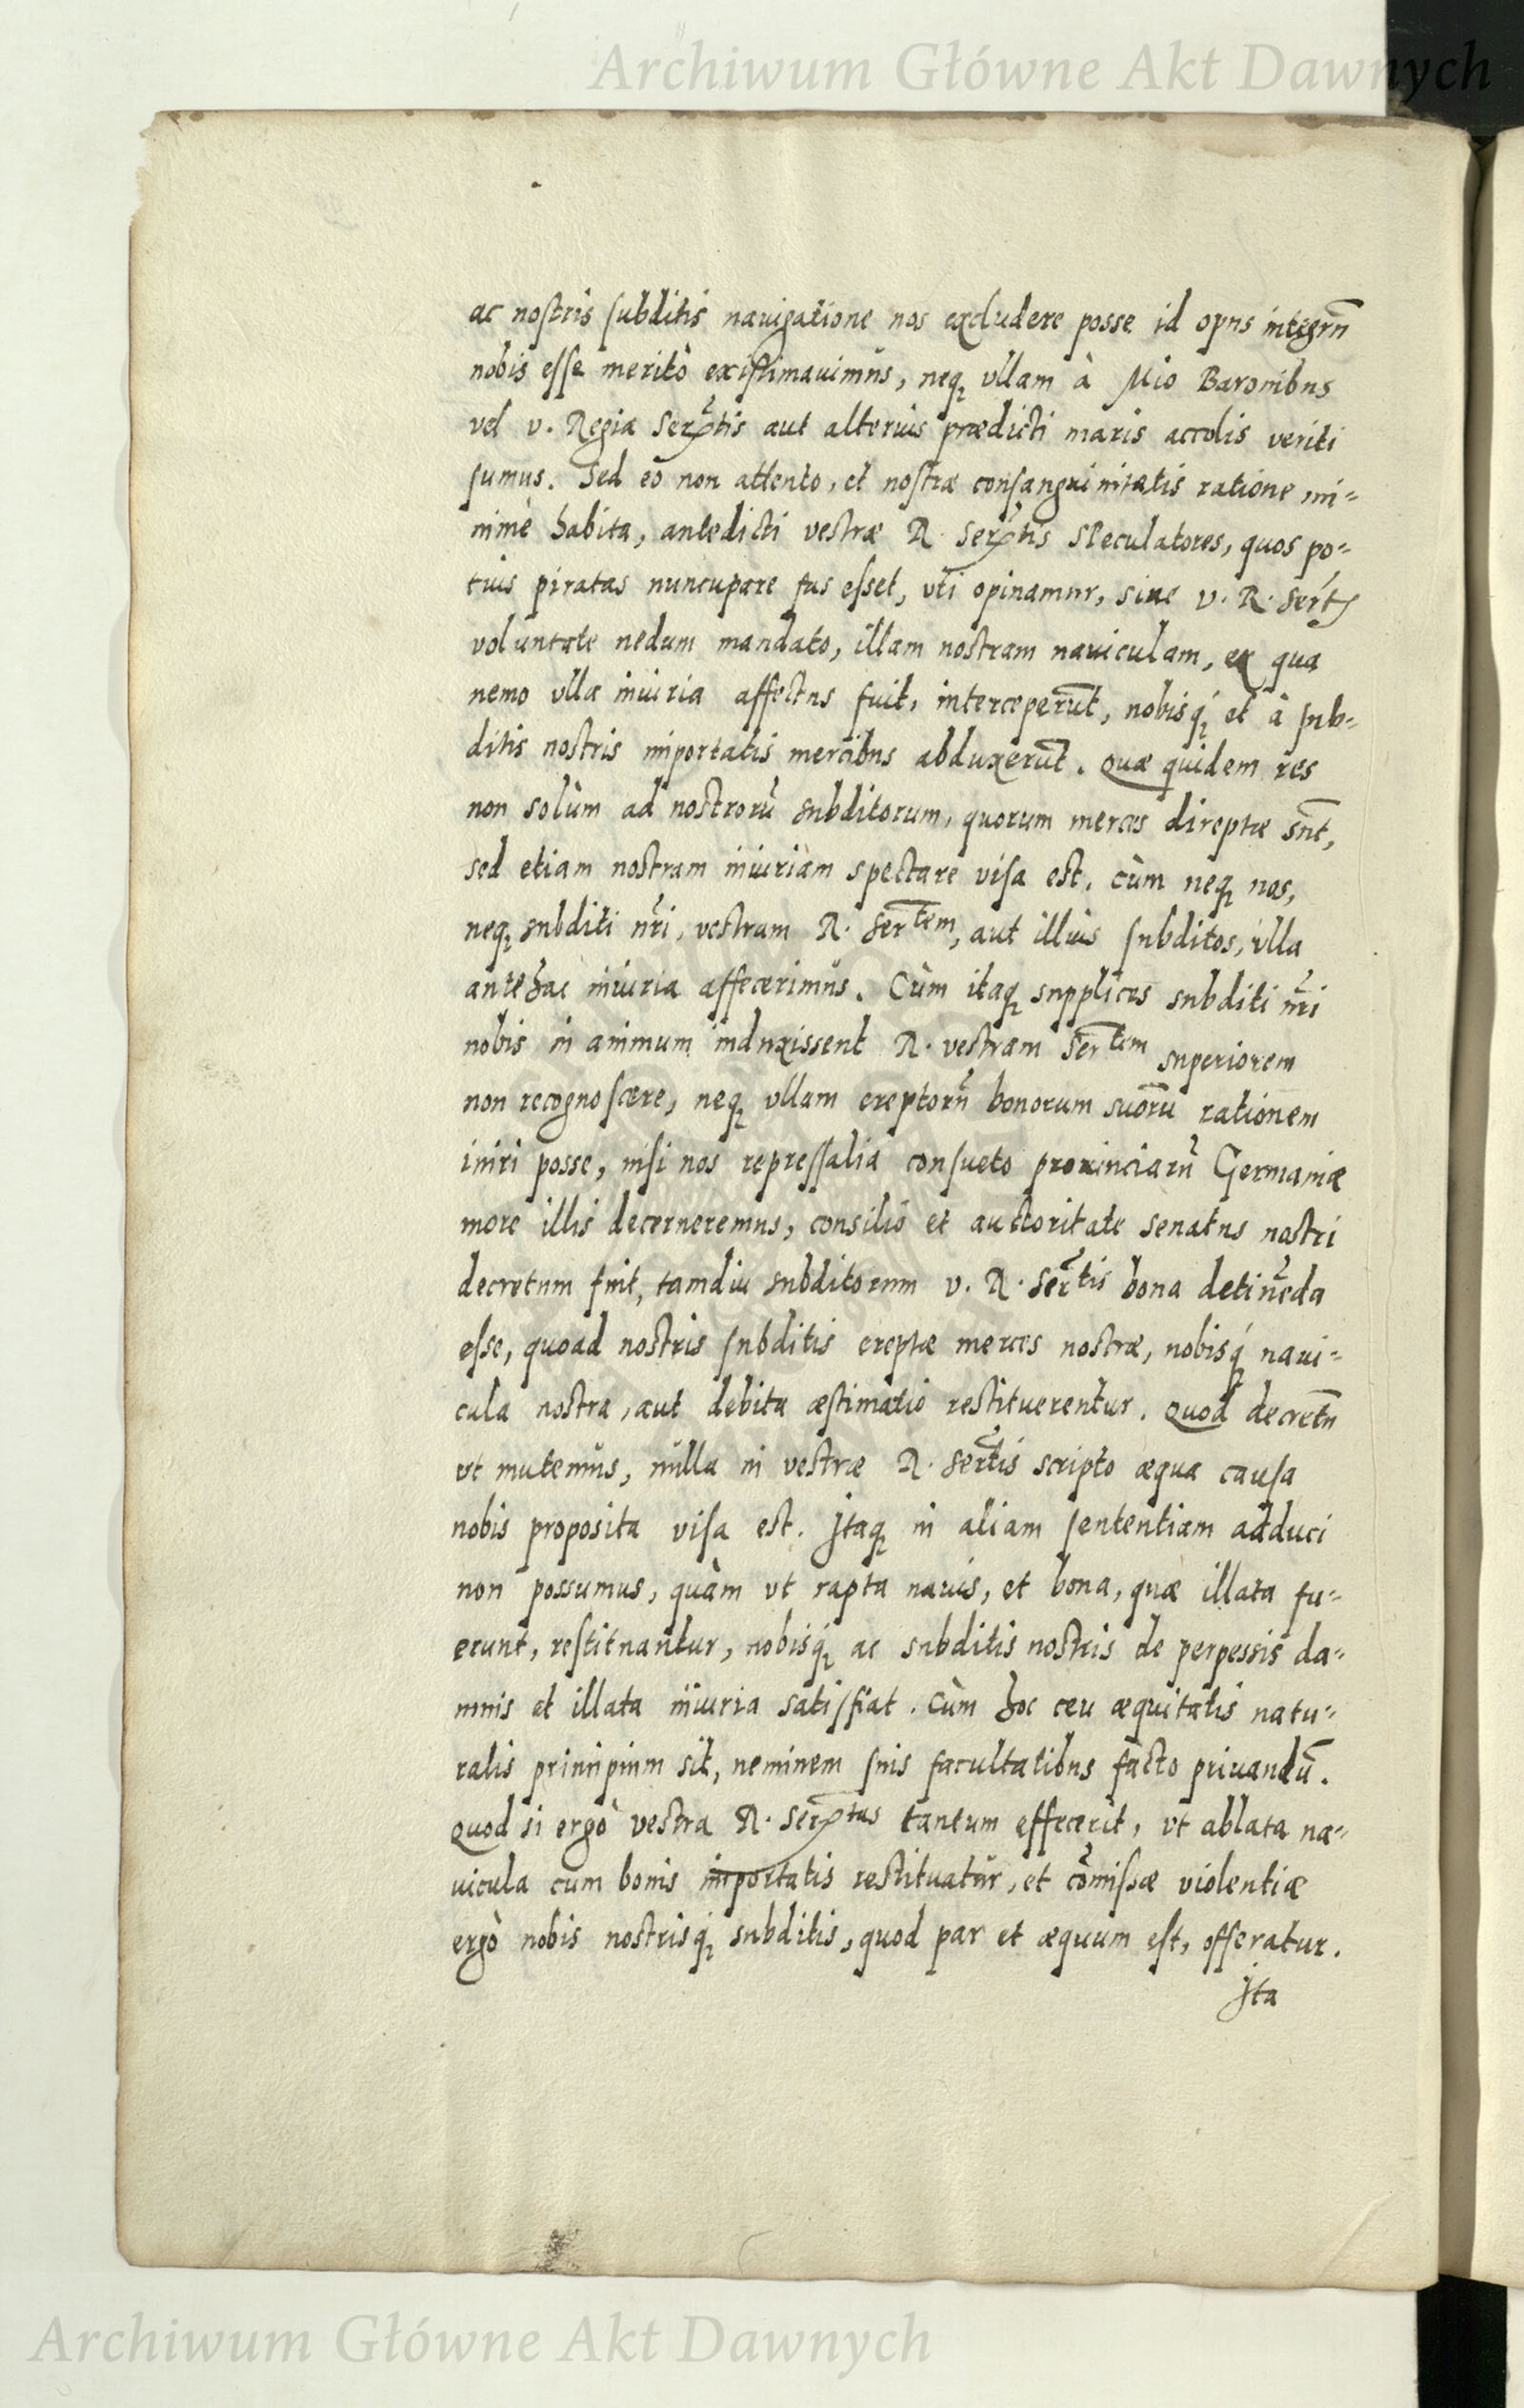 Archiwum Główne Akt Dawnych
ac nostris subditis nauigatione nos excludere posse id opus integrũ
nobis esse meritò existimauimus, neq; vllam à Baronibus
vel v. Regiæ Serẽtis aut alterius prædicti maris accolis veriti
sumus. Sed eo non attento, et nostræ consanguinitatis ratione mi-
nimè habita, antedicti vestræ R. Serẽtis speculatores, quos po-
tius piratas nuncupare fas esset, vti opinamur, siue v. R. Serts
voluntate nedum mandato, illam nostram nauiculam, ex qua
nemo vlla iniuria affectus fuit, interceperũt, nobisq; et à sub-
ditis nostris importatis mercibus abduxerũt. Quæ quidem res
non solùm ad nostrorũ subditorum, quorum merces direptæ sũt,
sed etiam nostram iniuriam spectare visa est. cùm neq; nos,
neq; subditi nr̃i, vestram R. Sertem, aut illius subditos, vlla
antehac iniuria affecerimus. Cùm itaq; supplices subditi nr̃i
nobis in animum induxissent R. vestram Sertem superiorem
non recognoscere, neq; vllam ereptorũ bonorum suorũ rationem
iniri posse, nisi nos repressalia consueto prouinciarũ Germaniæ
more illis decerneremus, consilio et auctoritate senatus nostri
decretum fuit, tamdiu subditorum v. R. Sertis bona detinẽda
esse, quoad nostris subditis ereptæ merces nostræ, nobisq; naui-
cula nostra, aut debita æstimatio restituerentur. Quod decretũ
vt mutemus, nulla in vestræ R. Sertis scripto æqua causa
nobis proposita visa est. Itaq; in aliam sententiam adduci
non possumus, quàm vt rapta nauis, et bona, quæ illata fu-
erunt, restituantur, nobisq; ac subditis nostris de perpessis da-
mnis et illata iniuria satisfiat. Cùm hoc ceu æquitatis natu-
ralis principium sit, neminem suis facultatibus facto priuandũ.
Quod si ergò vestra R. Serẽtas tantum effecerit, vt ablata na-
uicula cum bonis importatis restituatur, et cõmissæ violentiæ
ergò nobis nostrisq; subditis, quod par et æquum est, offeratur.
Ita
Archiwum Główne Akt Dawnych